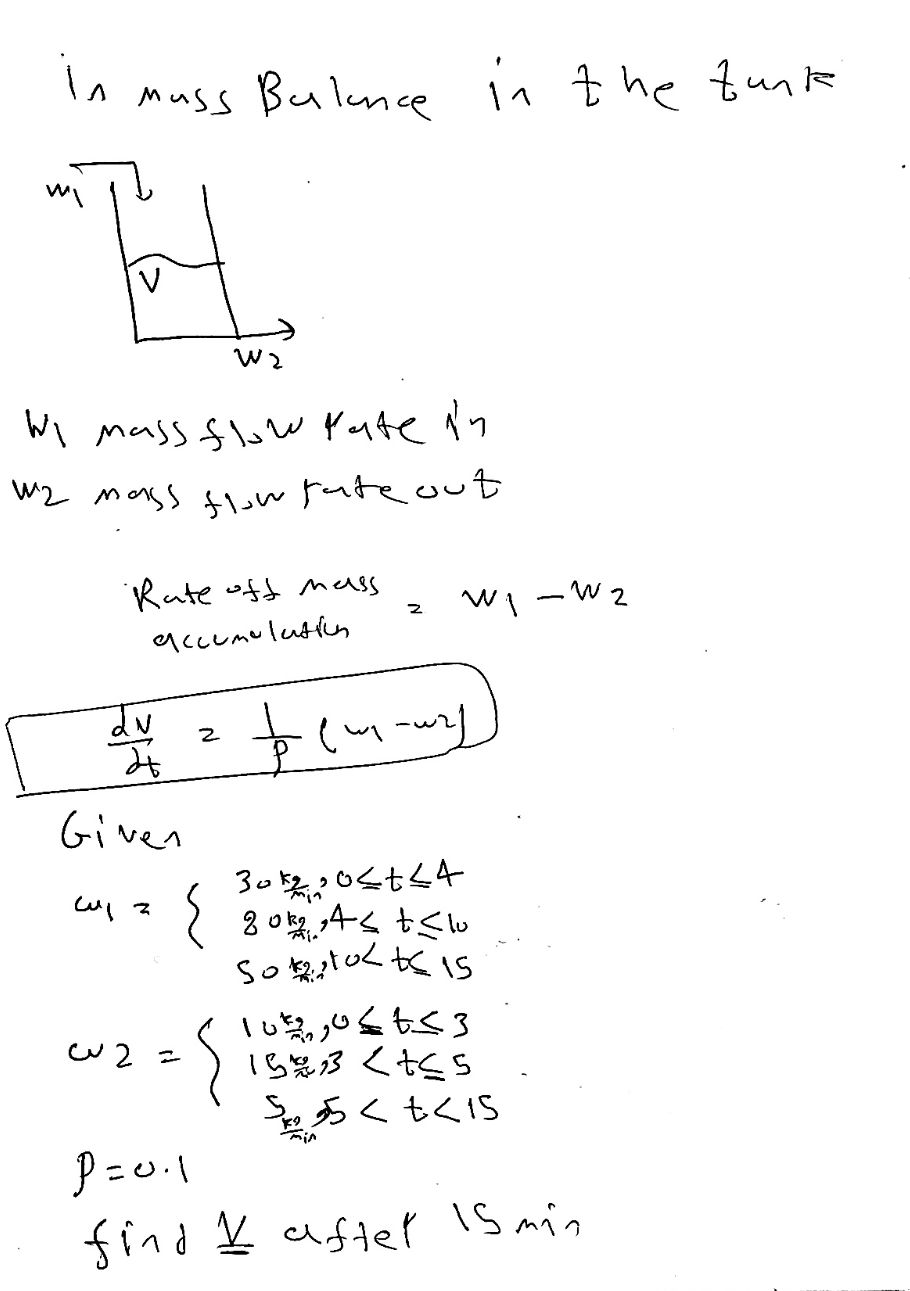 in mass Balance in the tank
w1
V
w2
W1 mass flow rate in
w2 mass flow rate out
Rate off mass
accumulation = w1 - w2
dV/dt = 1/ρ (w1 - w2)
Given
w1 = { 30 kg/min, 0 ≤ t ≤ 4
80 kg/min, 4 ≤ t ≤ 10
50 kg/min, 10 < t ≤ 15
w2 = { 10 kg/min, 0 ≤ t ≤ 3
15 kg/min, 3 < t ≤ 5
5 kg/min, 5 < t < 15
ρ = 0.1
find V after 15 min